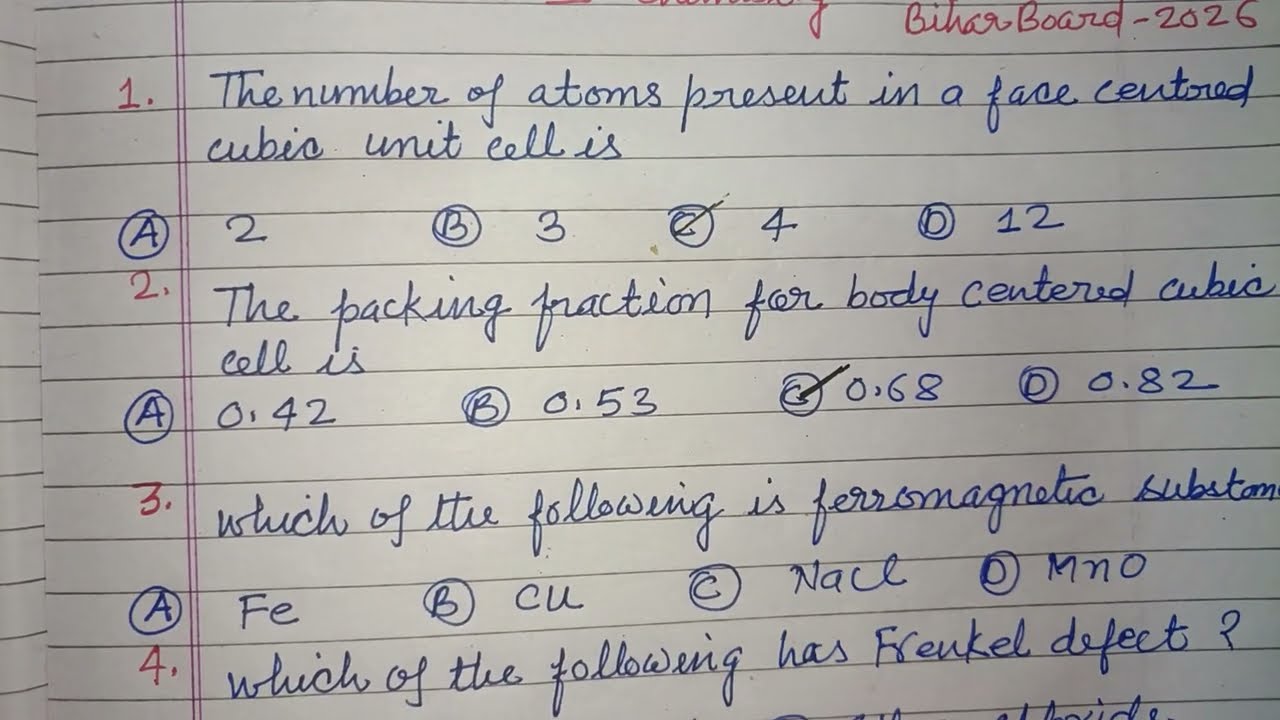 Bihar Board - 2026
1. The number of atoms present in a face centred
cubic unit cell is
A 2 B 3 C 4 D 12
2. The packing fraction for body centered cubic
cell is
A 0.42 B 0.53 C 0.68 D 0.82
3. which of the following is ferromagnetic
A Fe B CU C NaCl D MnO
4. which of the following has Frenkel defect ?